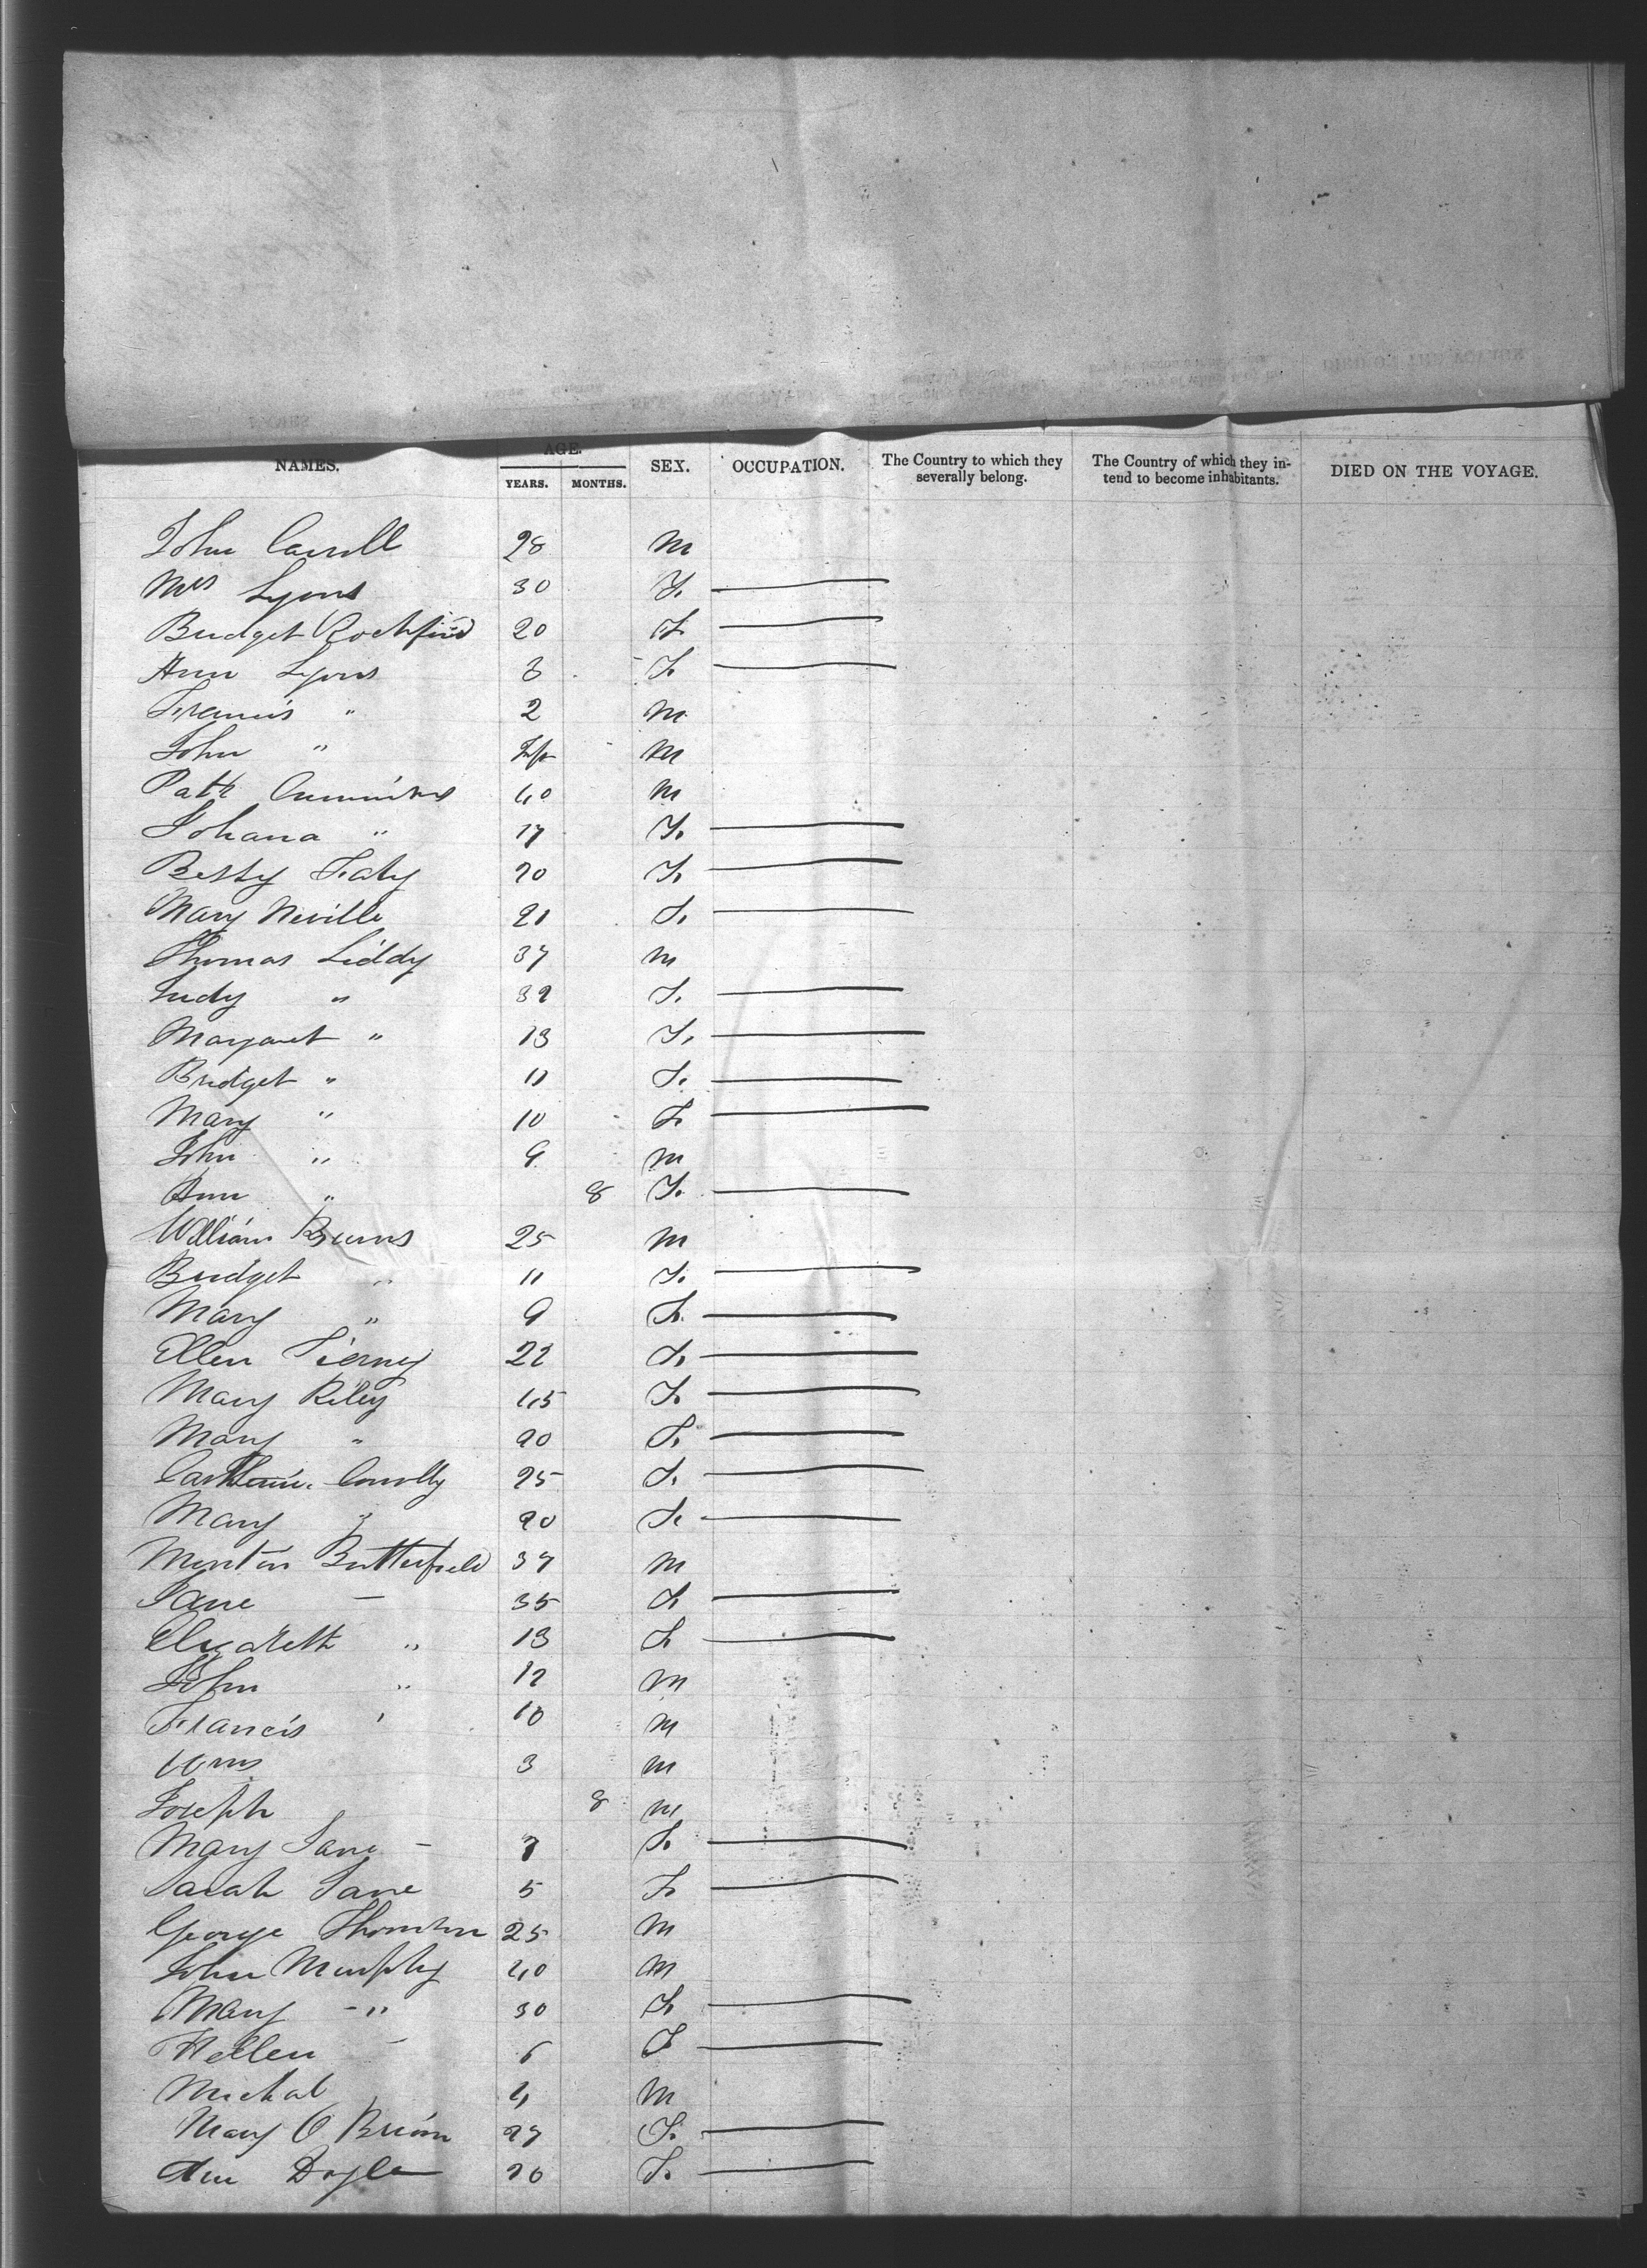 NAMES. AGE. YEARS. MONTHS. SEX. OCCUPATION. The Country to which they severally belong. The Country of which they intend to become inhabitants. DIED ON THE VOYAGE.
John Carroll 28 M
Mrs Lyons 30 F.
Bridget Rochford 20 F
Ann Lyons 3 F.
Francis " 2 M
John " Inft M
Patk Cummins 40 M
Johana " 17 F.
Betsy Fealy 20 F.
Mary Neville 21 F.
Thomas Liddy 37 M
Judy " 32 F.
Margaret " 13 F.
Bridget " 11 F.
Mary " 10 F.
John " 9 M
Ann " 8 F.
William Burns 25 M
Bridget " 11 F.
Mary " 9 F.
Ellen Tierney 22 F.
Mary Riley 45 F.
Mary " 20 F.
Catherine Conolly 25 F.
Mary " 20 F.
Butterfield 37 M
Jane — 35 F.
Elizabeth " 13 F.
John " 12 M
Francis " 10 M
Wm 3 M
Joseph 8 M
Mary Jane - 7 F.
Sarah Jane 5 F.
George Thornton 25 M
John Murphy 40 M
Mary -" 30 F.
Hellen - 6 F
Michal 4 M
Mary O Brien 27 F.
Ann Doyle 20 F.